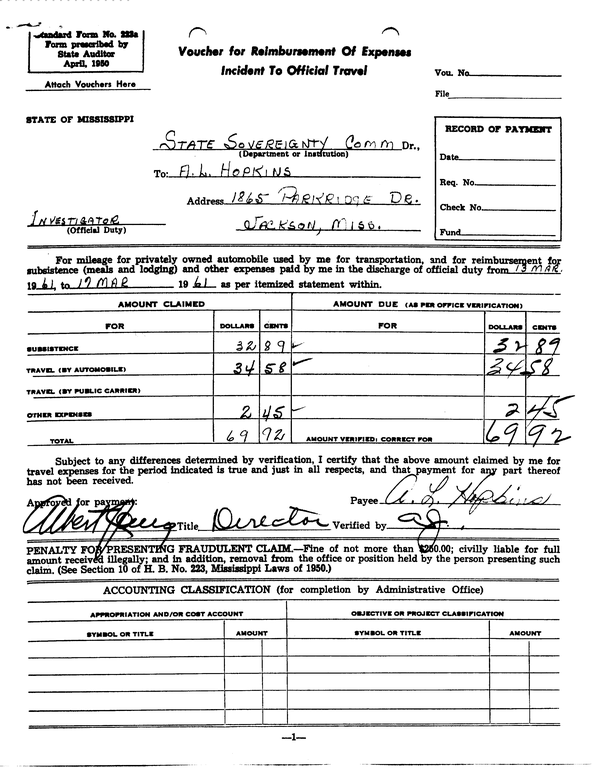 Standard Form No. 223a
Form prescribed by
State Auditor
April, 1950
Attach Vouchers Here
Voucher for Reimbursement Of Expenses
Incident To Official Travel
Vou. No.
File
STATE OF MISSISSIPPI
RECORD OF PAYMENT
Date
Req. No.
Check No.
Fund
STATE SOVEREIGNTY COMM Dr.,
(Department or Institution)
To: A. L. HOPKINS
Address 1865 PARKRIDGE DR.
INVESTIGATOR
(Official Duty)
JACKSON, MISS.
For mileage for privately owned automobile used by me for transportation, and for reimbursement for
subsistence (meals and lodging) and other expenses paid by me in the discharge of official duty from 13 MAR.
1961, to 17 MAR 1961 as per itemized statement within.
AMOUNT CLAIMED AMOUNT DUE (AS PER OFFICE VERIFICATION)
FOR DOLLARS CENTS FOR DOLLARS CENTS
SUBSISTENCE 32 89 32 89
TRAVEL (BY AUTOMOBILE) 34 58 34 58
TRAVEL (BY PUBLIC CARRIER)
OTHER EXPENSES 2 45 2 45
TOTAL 69 92 AMOUNT VERIFIED: CORRECT FOR 69 92
Subject to any differences determined by verification, I certify that the above amount claimed by me for
travel expenses for the period indicated is true and just in all respects, and that payment for any part thereof
has not been received.
Approved for payment:
Payee A. L. Hopkins
Albert Jones Title Director Verified by
PENALTY FOR PRESENTING FRAUDULENT CLAIM.—Fine of not more than $250.00; civilly liable for full
amount received illegally; and in addition, removal from the office or position held by the person presenting such
claim. (See Section 10 of H. B. No. 223, Mississippi Laws of 1950.)
ACCOUNTING CLASSIFICATION (for completion by Administrative Office)
APPROPRIATION AND/OR COST ACCOUNT OBJECTIVE OR PROJECT CLASSIFICATION
SYMBOL OR TITLE AMOUNT SYMBOL OR TITLE AMOUNT
—1—